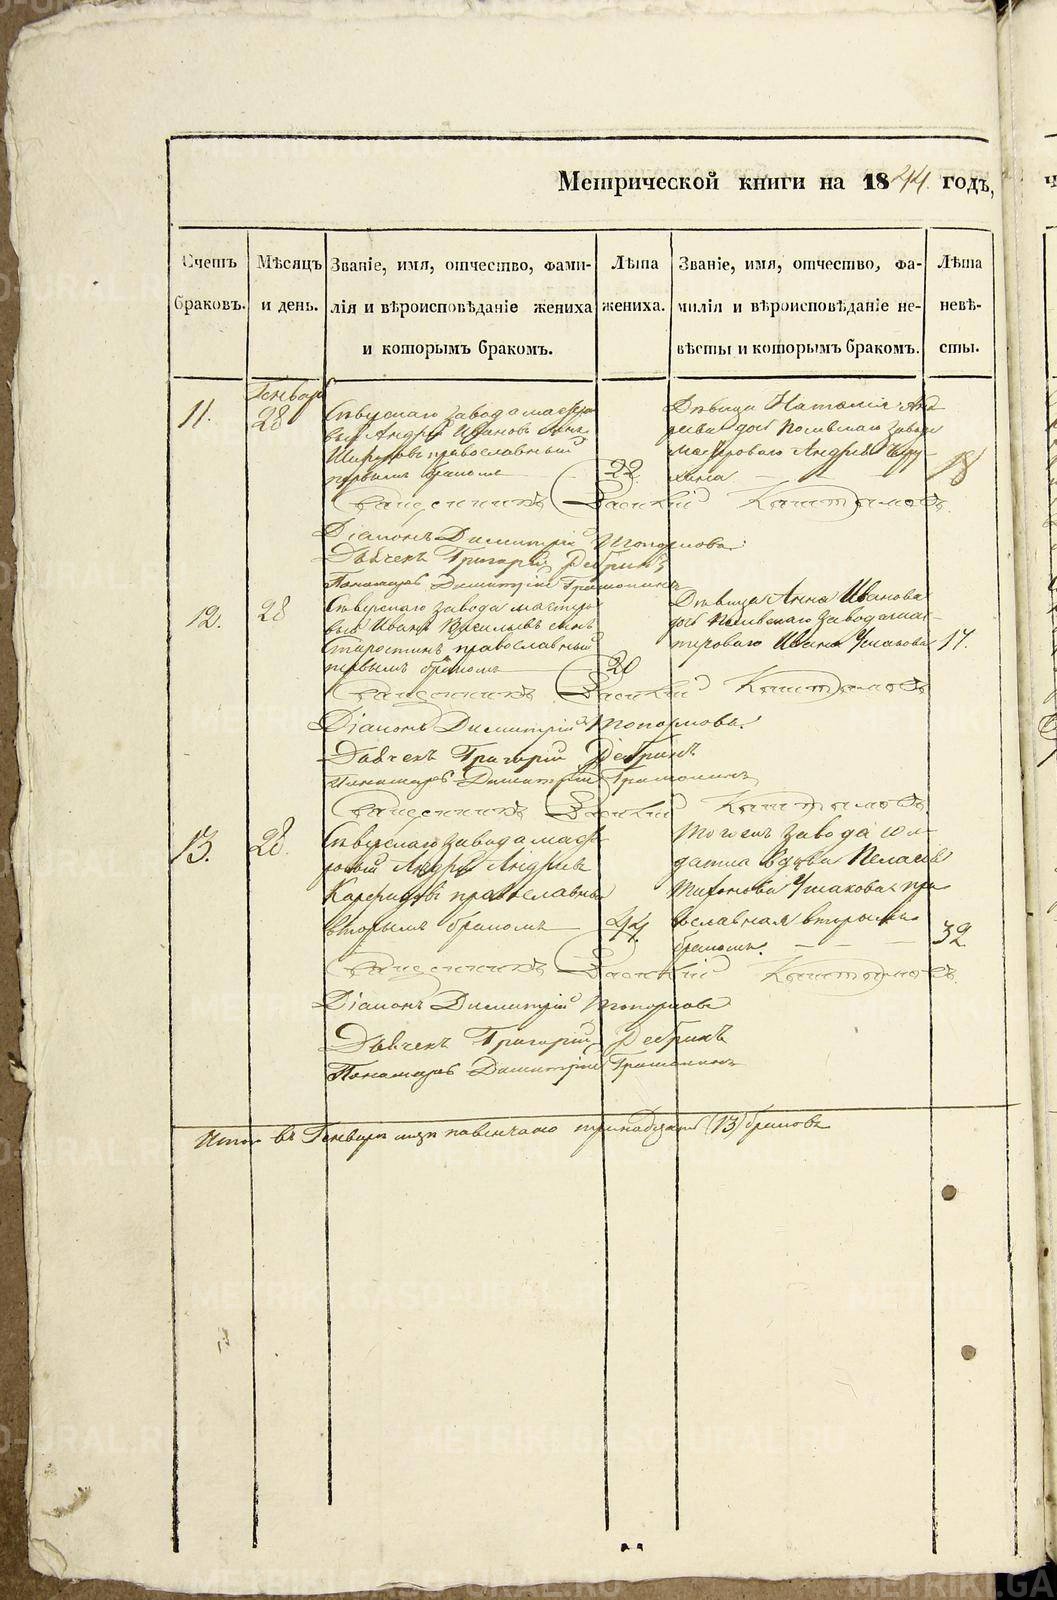 Метрической книги на 1844 годъ,
Счетъ браковъ.
Мѣсяцъ и день.
Званіе, имя, отчество, фами-
лія и вѣроисповѣданіе жениха
и которымъ бракомъ.
Лѣта
жениха.
Званіе, имя, отчество, фа-
милія и вѣроисповѣданіе не-
вѣсты и которымъ бракомъ.
Лѣта
невѣ-
сты.
11.
Генварь
28
Сѣверскаго завода мастеро
вый Андрей Ивановъ сынъ
православный
первымъ бракомъ
22
Дѣвица Наталія Анд
реева дочь Полевскаго завода
мастероваго Андрея
18
Священникъ Василій
Діаконъ Димитрій Топорковъ
Дьячекъ Григорій Ребринъ
Пономарь Димитрій
12.
28
Сѣверскаго завода мастеро
вый Иванъ Васильевъ сынъ
Старостинъ православный
первымъ бракомъ
20
Дѣвица Анна Иванова
дочь Полевскаго завода мас
тероваго Ивана Ушакова
17.
Священникъ Василій
Діаконъ Димитрій Топорковъ
Дьячекъ Григорій Ребринъ
Пономарь Димитрій
Священникъ Василій
13.
28.
Сѣверскаго завода масте
ровый Андрей Андреевъ
православный
вторымъ бракомъ
44
Того жъ завода сол
датка вдова Пелагея
Тихонова Ушакова пра
вославная вторымъ
бракомъ.
32
Священникъ Василій
Діаконъ Димитрій Топорковъ
Дьячекъ Григорій Ребринъ
Пономарь Димитрій
Итого въ Генварѣ мцѣ повенчано тринадцать (13) браковъ
METRIKI.GASO-URAL.RU